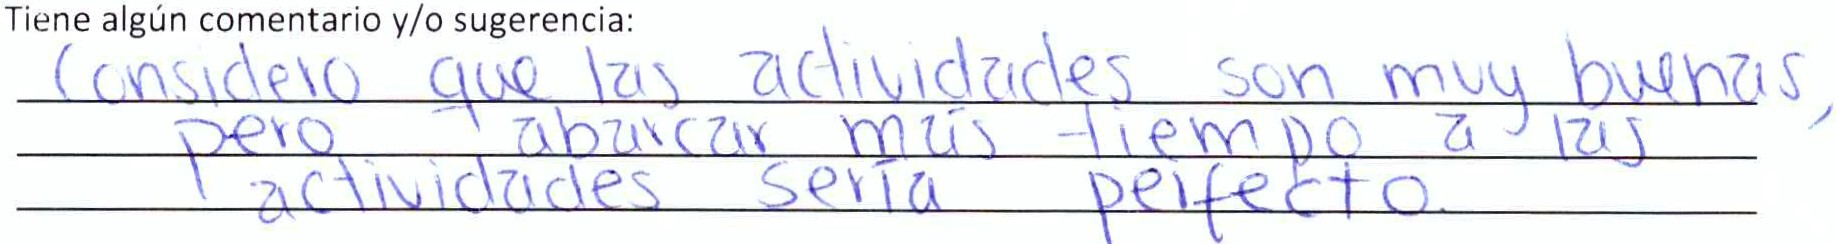 Tiene algún comentario y/o sugerencia:
Considero que las actividades son muy buenas,
pero abarcar más tiempo a las
actividades sería perfecto.